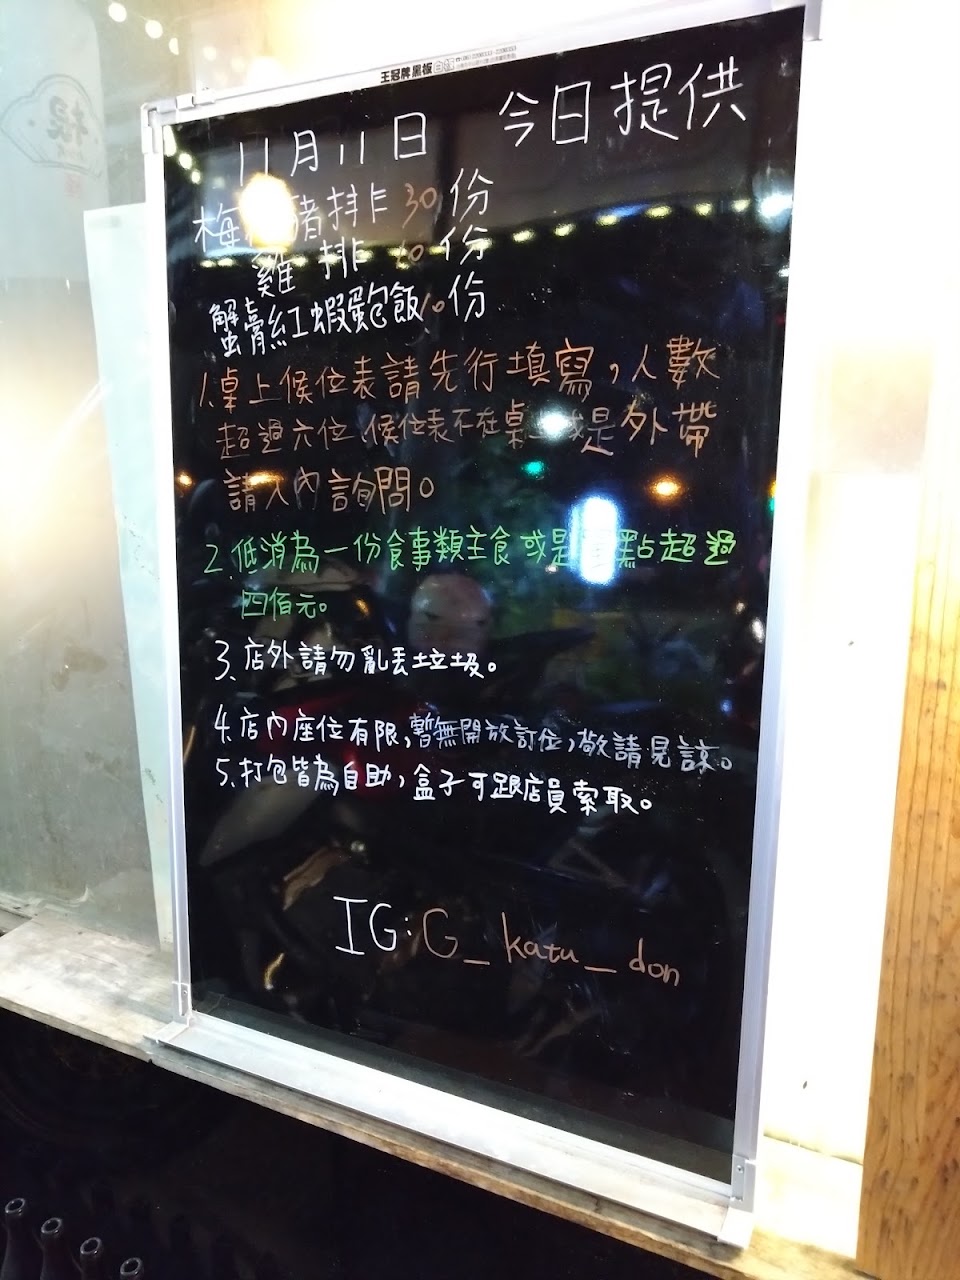 王冠牌黑板白板
11月11日 今日提供
梅 豬排 30份
雞排 份
蟹膏紅蝦雞蛋飯10份
1.桌上候位表請先行填寫，人數
超過六位、候位表不在桌上或是外帶
請入內詢問。
2.低消為一份食事類主食或是 點超過
四佰元。
3.店外請勿亂丟垃圾。
4.店內座位有限，暫無開放訂位，敬請見諒。
5.打包皆為自助，盒子可跟店員索取。
IG:G_katu_don